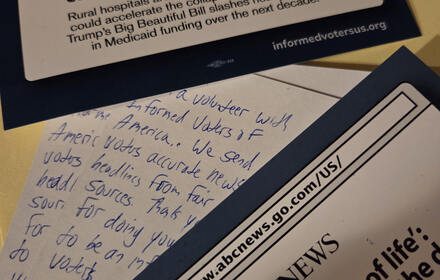 Rural hospitals a
could accelerate the colla
Trump's Big Beautiful Bill slashes
in Medicaid funding over the next decade.
informedvotersus.org
a volunteer with
Informed Voters of
America.. We send
Americ voters accurate news
voters headlines from fair
headl sources. Thank yo
sour. For doing you
for to be an inf
to voters
www.abcnews.go.com/US/
NEWS
of life':